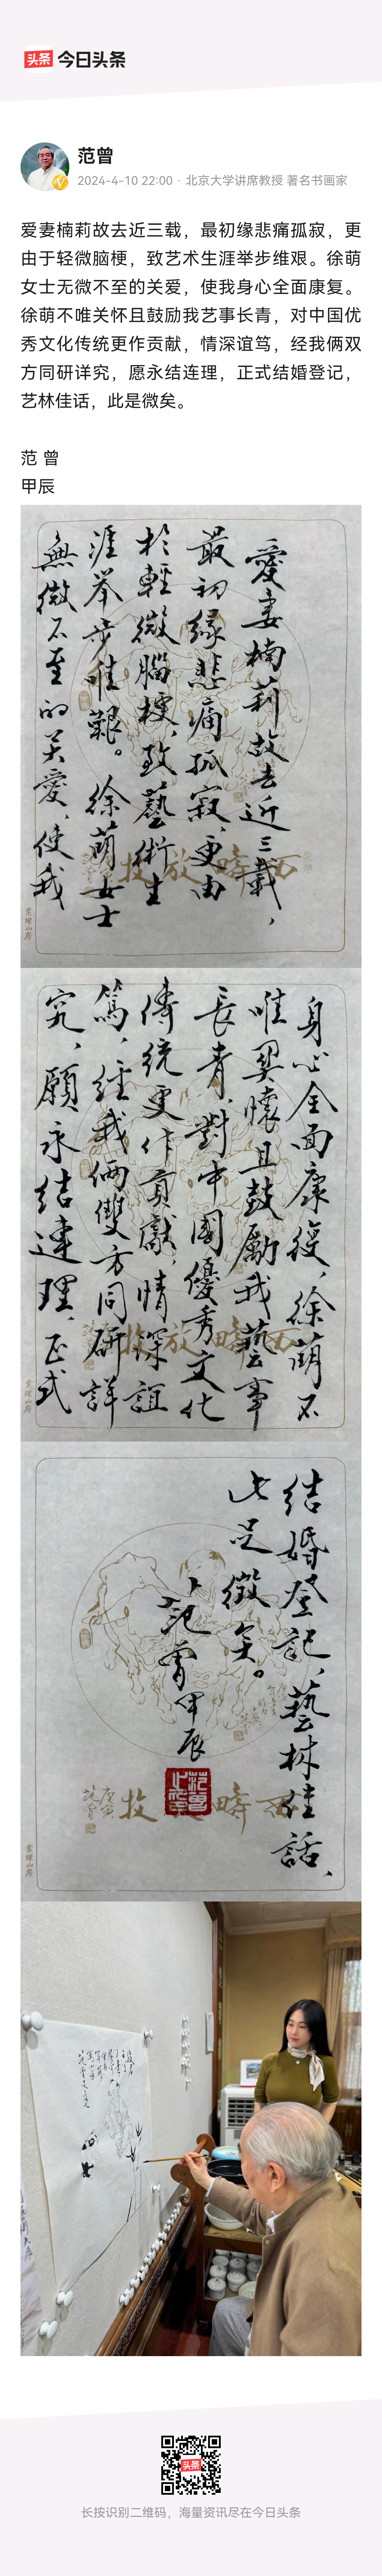 头条 今日头条
范曾
2024-4-10 22:00 · 北京大学讲席教授 著名书画家
爱妻楠莉故去近三载，最初缘悲痛孤寂，更
由于轻微脑梗，致艺术生涯举步维艰。徐萌
女士无微不至的关爱，使我身心全面康复。
徐萌不唯关怀且鼓励我艺事长青，对中国优
秀文化传统更作贡献，情深谊笃，经我俩双
方同研详究，愿永结连理，正式结婚登记，
艺林佳话，此是微矣。
范 曾
甲辰
愛妻楠莉故去近三載，
最初缘悲痛孤寂，更由
於輕微腦梗，致藝術生
涯举步维艱。徐萌女士
無微不至的关爱，使我
西疇放牧
素韆山房
身心全面康復，徐萌不
唯関懷且鼓励我藝事
長青，對中國優秀文化
傳统更作貢獻，情深誼
篤，经我俩雙方同研詳
究，願永结連理，正式
西疇放牧
结婚登記，藝林佳話，
此是微矣。
范曾甲辰
西疇放牧
头条
长按识别二维码，海量资讯尽在今日头条